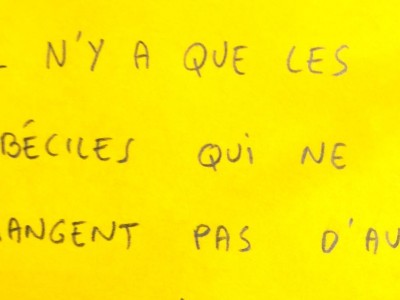 N'Y A QUE LES
BÉCILES QUI NE
ANGENT PAS D'AU